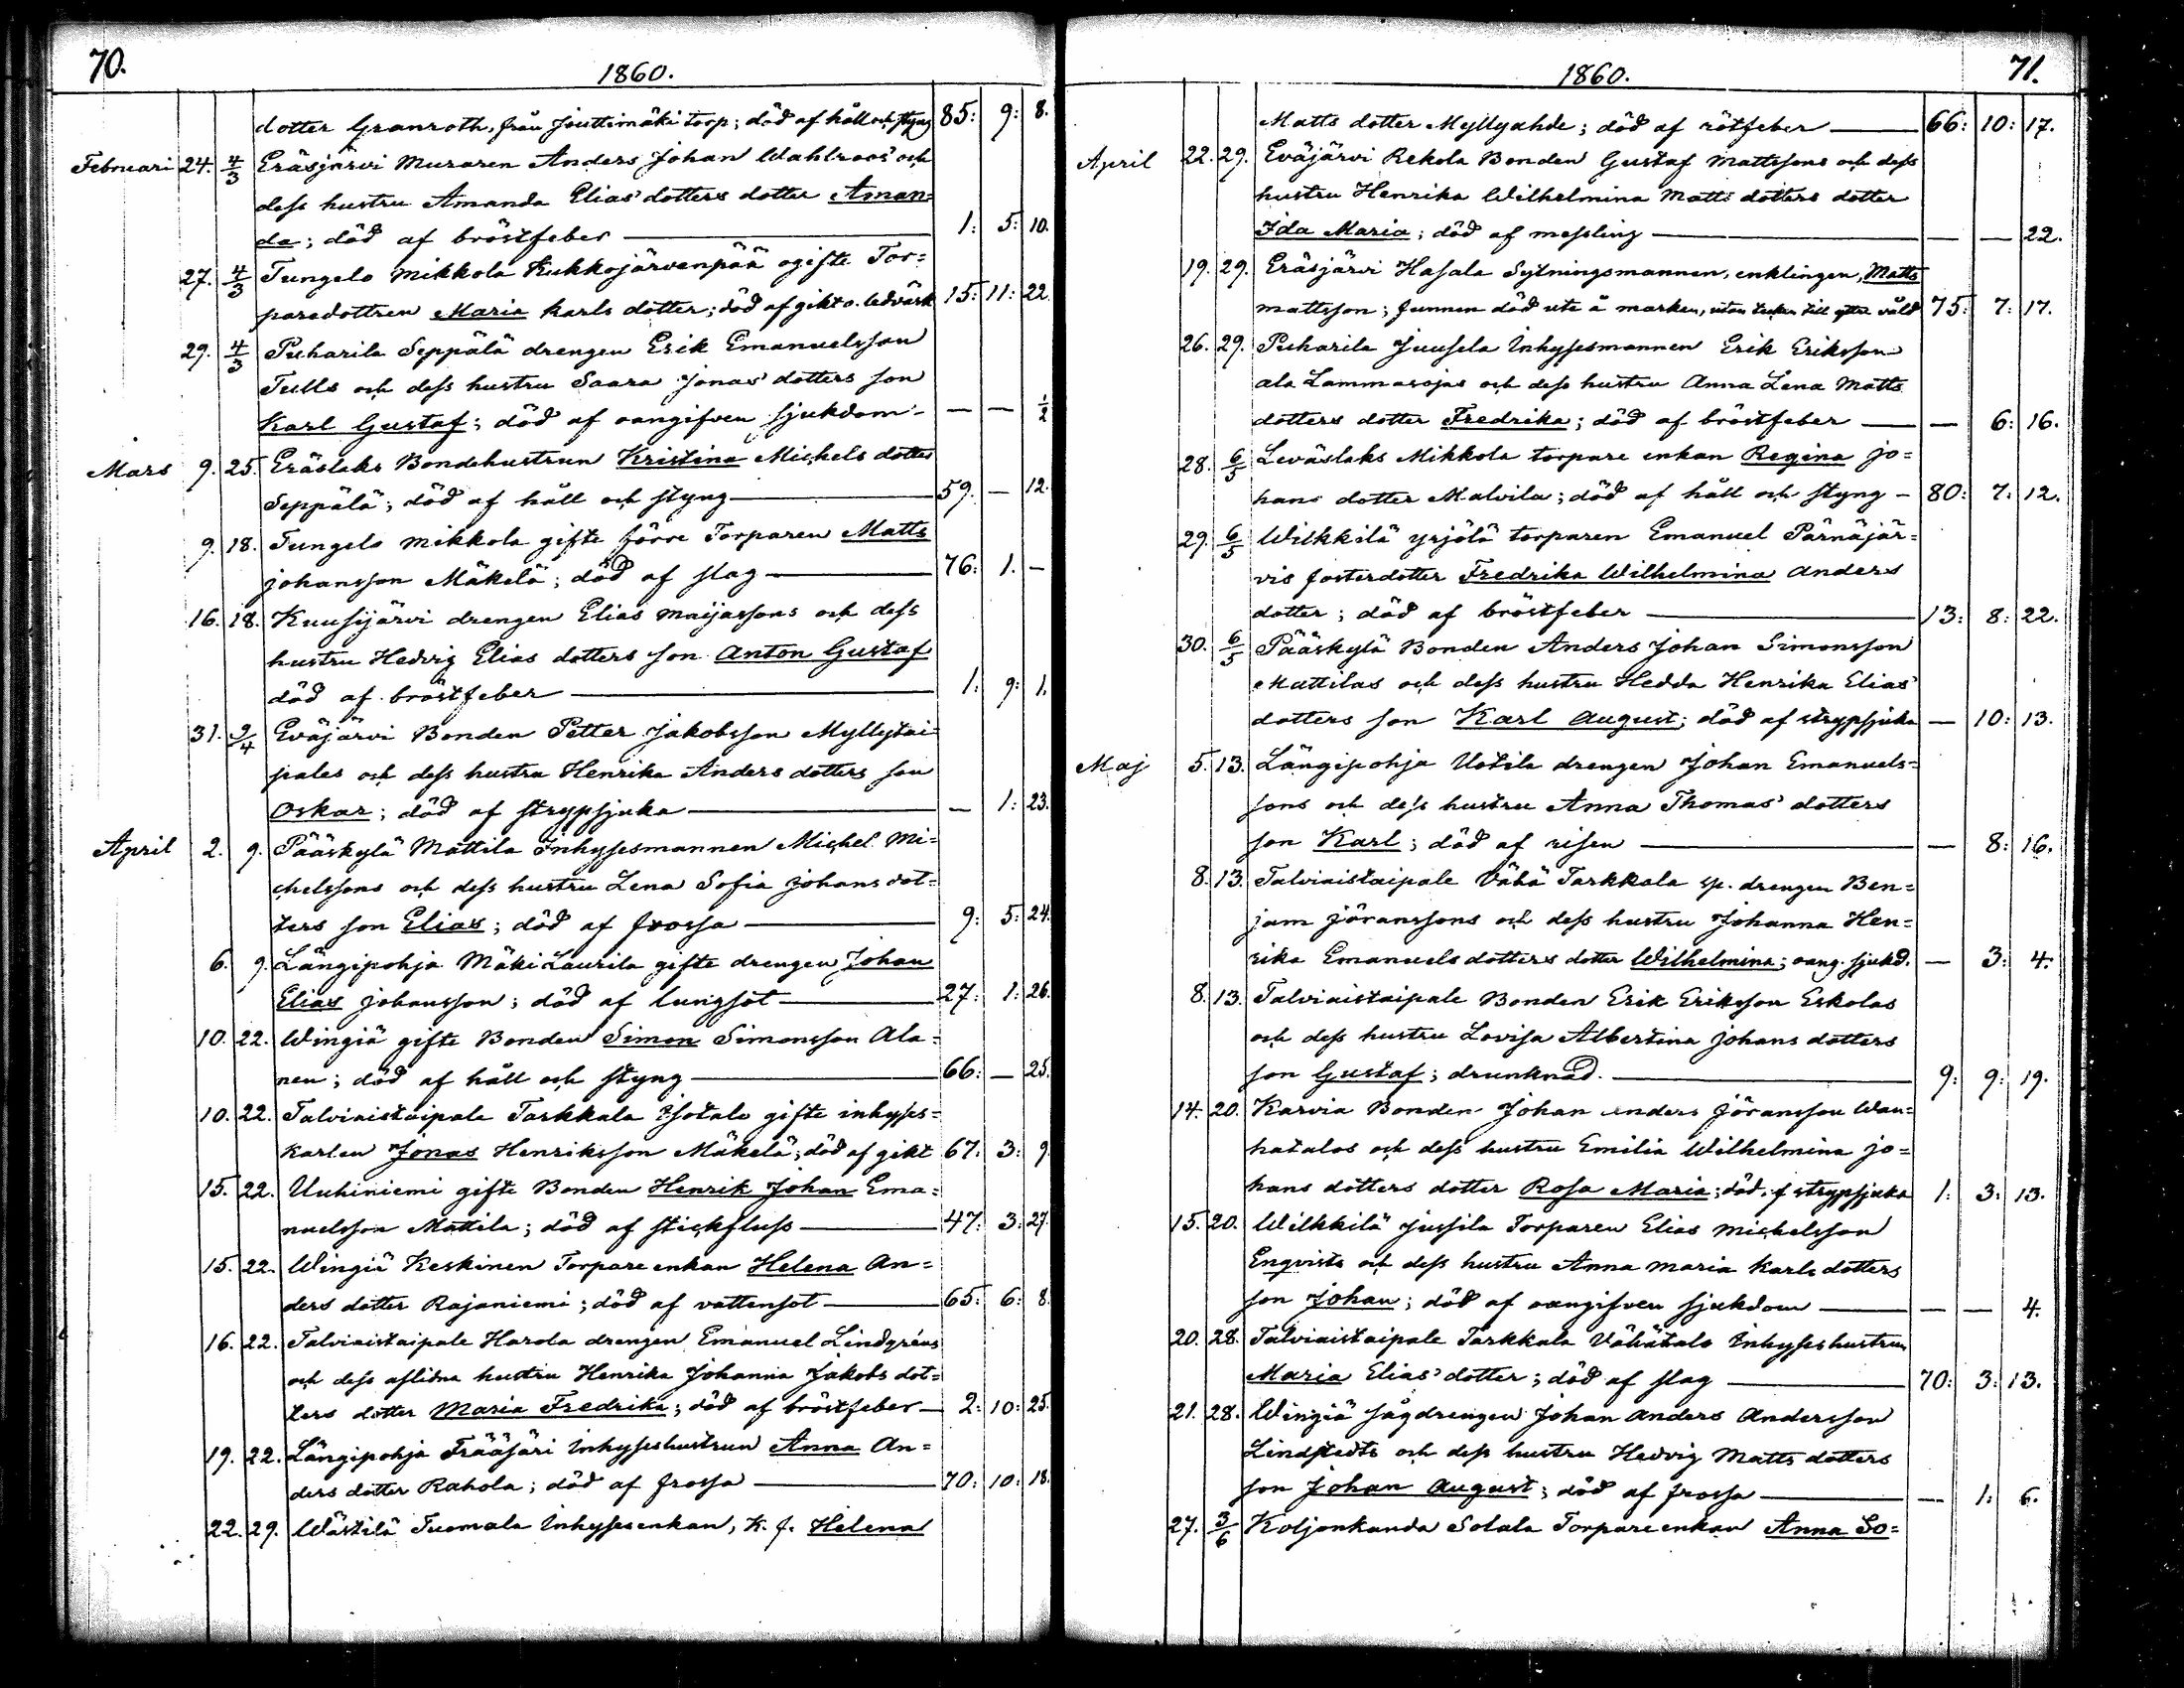 70.
1860.
dotter Granroth, från Jouttimäki torp; död af håll och styng 85: 9: 8.
Februari 24. 4/3 Eräsjärvi Muraren Anders Johan Wahlroos' och
dess hustru Amanda Elias' dotters dotter Aman=
da; död af bröstfeber 1: 5: 10.
27. 4/3 Tungelo Mikkola Kukkojärvenpää ogifte Tor=
paredottren Maria Karls dotter; död af gikt o. ledvärk 15: 11: 22.
29. 4/3 Puharila Seppälä drengen Erik Emanuelsson
Tulls och dess hustru Saara Jonas' dotters son
Karl Gustaf; död af oangifven sjukdom - — — 1/2
Mars 9. 25. Eräslaks Bondehustrun Kristina Michels dotter
Seppälä; död af håll och styng 59. — 12.
9. 18. Tungelo Mikkola gifte förre Torparen Matts
Johansson Mäkelä; död af slag 76: 1. —
16. 18. Kuusijärvi drengen Elias Maijassons och dess
hustru Hedvig Elias dotters son Anton Gustaf
död af bröstfeber 1: 9: 1.
31. 9/4 Eväjärvi Bonden Petter Jakobsson Myllytai=
pales och dess hustru Henrika Anders dotters son
Oskar; död af strypsjuka — 1: 23.
April 2. 9. Pääskylä Mattila Inhysesmannen Michel Mi=
chelssons och dess hustru Lena Sofia Johans dot=
ters son Elias; död af frossa 9: 5: 24.
6. 9. Längipohja MäkiLaurila gifte drengen Johan
Elias Johansson; död af lungsot 27: 1: 26.
10. 22. Wingiä gifte Bonden Simon Simonsson Ala=
nen; död af håll och styng 66: — 25.
10. 22. Talviaistaipale Tarkkala Isotalo gifte inhyses=
karlen Jonas Henriksson Mäkelä; död af gikt 67: 3: 9.
15. 22. Uuhiniemi gifte Bonden Henrik Johan Ema=
nuelsson Mattila; död af stickfluss 47: 3: 27.
15. 22. Wingiä Keskinen Torpare enkan Helena An=
ders dotter Rajaniemi; död af vattensot 65: 6: 8.
16. 22. Talviaistaipale Harola drengen Emanuel Lindgréns
och dess aflidna hustru Henrika Johanna Jakobs dot=
ters dotter Maria Fredrika; död af bröstfeber 2: 10: 25.
19. 22. Längipohja Frääsäri Inhyseshustrun Anna An=
ders dotter Rahola; död af frossa 70: 10: 18.
22. 29. Wästilä Tuomala Inhysesenkan, K. f. Helena
1860.
71.
Matts dotter Myllyahde; död af rötfeber 66: 10: 17.
April 22. 29. Eväjärvi Rekola Bonden Gustaf Mattssons och dess
hustru Henrika Wilhelmina Matts dotters dotter
Ida Maria; död af messling — — 22.
19. 29. Eräsjärvi Hasala Sytningsmannen, enklingen, Matts
Mattsson; funnen död ute å marken, utan tecken till yttre våld 75: 7: 17.
26. 29. Puharila Juusela Inhysesmannen Erik Eriksson
ala Lammasojas och dess hustru Anna Lena Matts
dotters dotter Fredrika; död af bröstfeber — 6: 16.
28. 6/5 Leväslaks Mikkola torpare enkan Regina Jo=
hans dotter Malvila; död af håll och styng - 80: 7: 12.
29. 6/5 Wilkkilä Yrjölä torparen Emanuel Pärnäjär=
vis fosterdotter Fredrika Wilhelmina Anders
dotter; död af bröstfeber 13: 8: 22.
30. 6/5 Pääskylä Bonden Anders Johan Simonsson
Mattilas och dess hustru Hedda Henrika Elias'
dotters son Karl August; död af strypsjuka — 10: 13.
Maj 5. 13. Längipohja Uotila drengen Johan Emanuels=
sons och dess hustru Anna Thomas' dotters
son Karl; död af risen — 8: 16.
8. 13. Talviaistaipale Vähä Tarkkala sp. drengen Ben=
jam Jöranssons och dess hustru Johanna Hen=
rika Emanuels dotters dotter Wilhelmina; oang. sjukd. — 3: 4.
8. 13. Talviaistaipale Bonden Erik Eriksson Eskolas
och dess hustru Lovisa Albertina Johans dotters
son Gustaf; drunknad. 9: 9: 19.
14. 20. Karvia Bonden Johan Anders Jöransson Wan=
hatalos och dess hustru Emilia Wilhelmina Jo=
hans dotters dotter Rosa Maria; död af strypsjuka 1: 3: 13.
15. 20. Wilkkilä Jussila Torparen Elias Michelsson
Enqvists och dess hustru Anna Maria Karls dotters
son Johan; död af oangifven sjukdom — — 4.
20. 28. Talviaistaipale Tarkkala Vähätalo Inhyseshustrun
Maria Elias' dotter; död af slag 70: 3: 13.
21. 28. Wingiä sågdrengen Johan Anders Andersson
Lindstedts och dess hustru Hedvig Matts dotters
son Johan August; död af frossa — 1: 6.
27. 3/6 Koljonkanda Sotala Torpareenkan Anna So=